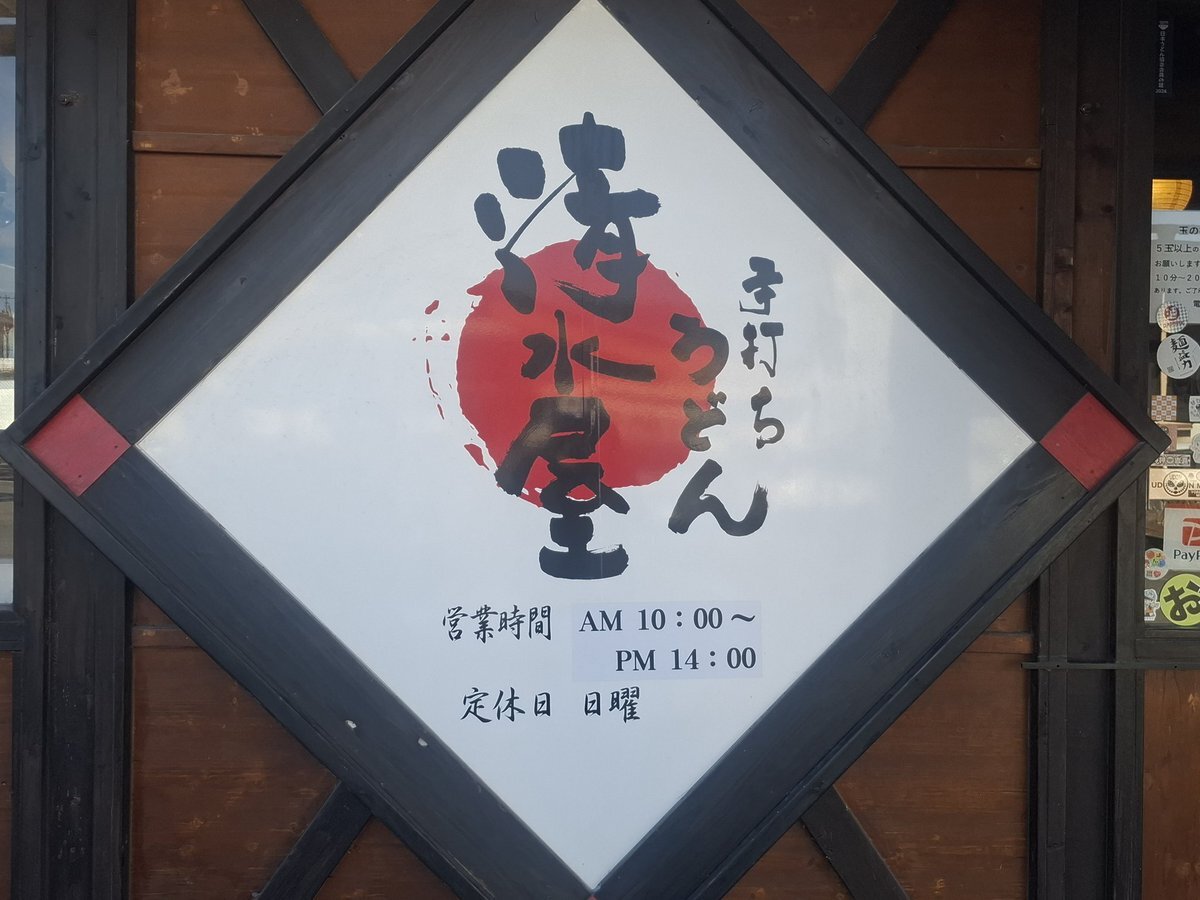 手打ち
うどん
清水屋
営業時間 AM 10：00～
PM 14：00
定休日 日曜
玉の
５玉以上の
お願いします
１０分～２０
あります。ご了
麺
PayP
お